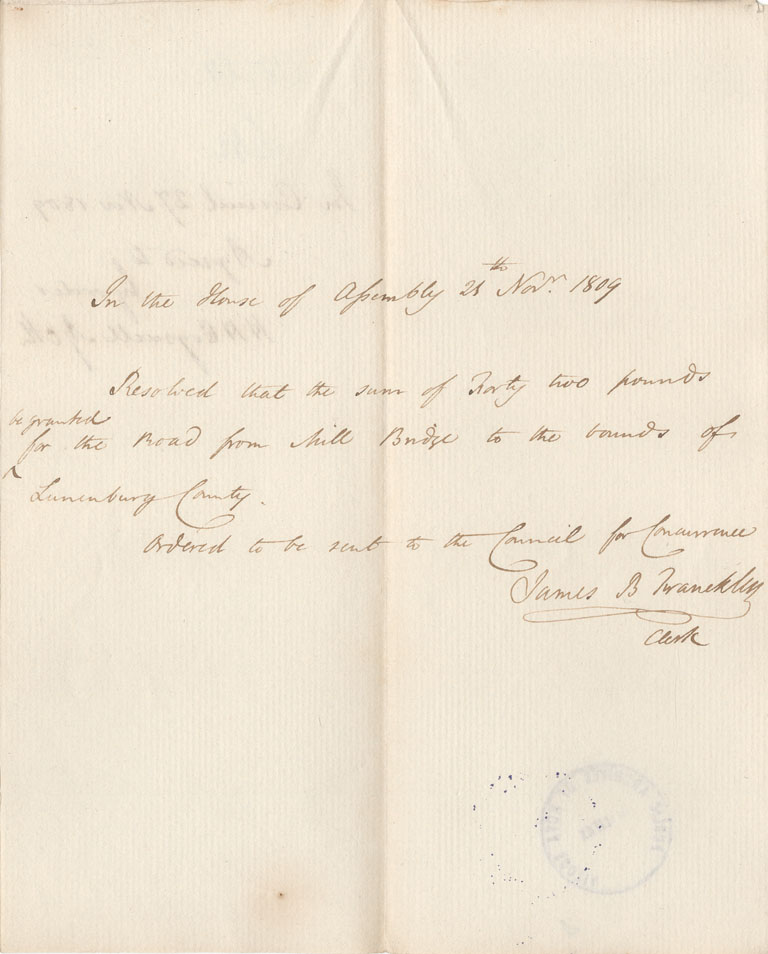 In the House of Assembly 25th Novr. 1809
Resolved that the sum of Forty two pounds
be granted
for the Road from Mill Bridge to the bounds of
Lunenburg County.
Ordered to be sent to the Council for Concurrence
James B Franckling
Clerk